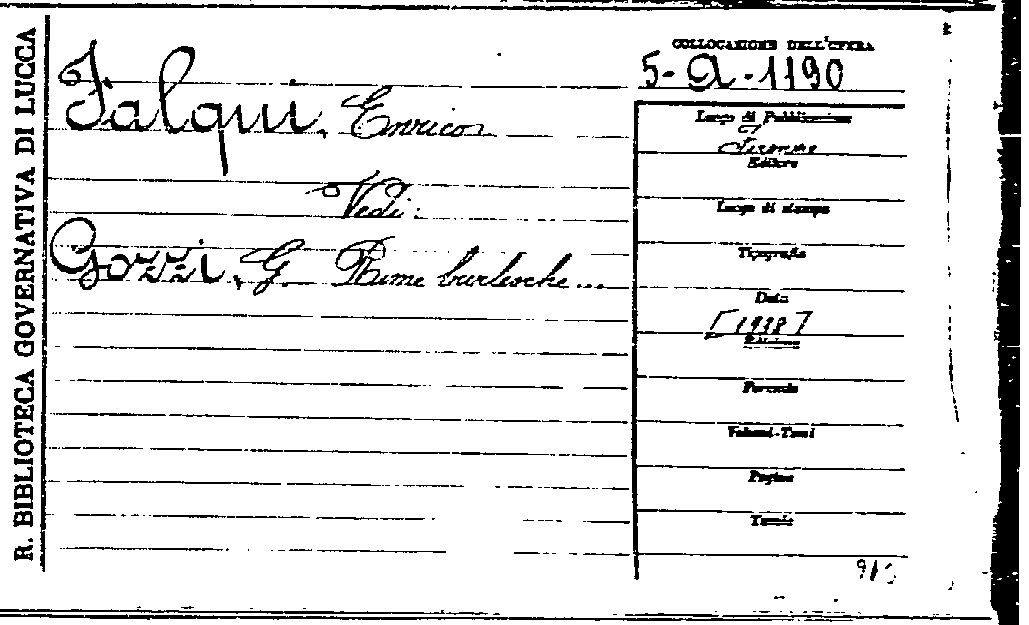 R. BIBLIOTECA GOVERNATIVA DI LUCCA
Falqui, Enrico
Vedi:
Gozzi, G. Rime burlesche...
COLLOCAZIONE DELL'OPERA
5-a-1190
Luogo di Pubblicazione
Firenze
Editore
Luogo di stampa
Tipografia
Data
[1938]
Edizione
Formato
Volumi-Tomi
Pagine
Tavole